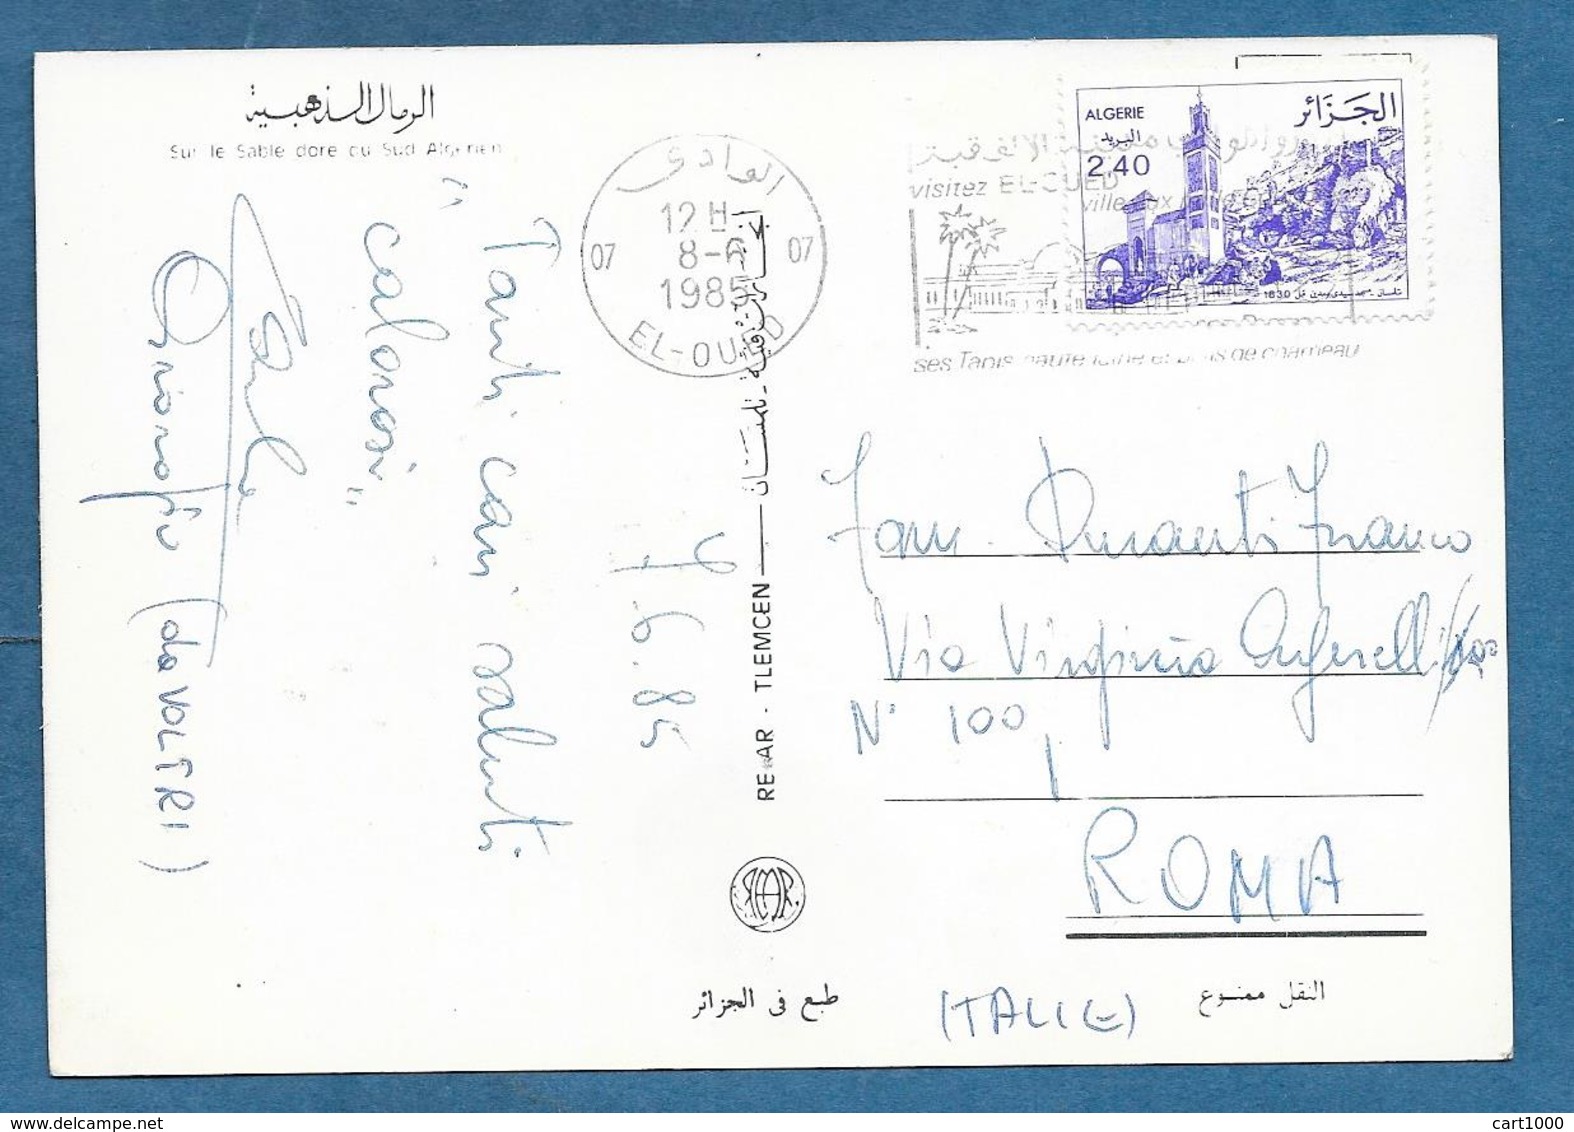 الرمال الذهبية
Sur le Sable doré du Sud Algérien
7.6.85
" Tanti cari saluti
calorosi "
(da VOLTRI)
العادي
12 H
8-6
1985
07 07
EL-OUED
visitez EL-OUED
ville aux
ses Tapis haute laine et poils de chameau
ALGERIE
الجزائر
البريد
2.40
1830
REMAR - TLEMCEN
تلمسان
Fam. Duranti Franco
Via Virginia Agnelli
N° 100
ROMA
(ITALIE)
طبع في الجزائر
النقل ممنوع
cart1000